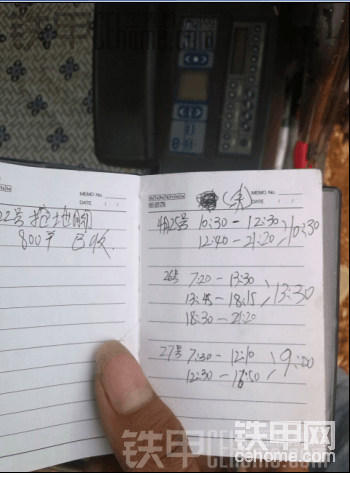 铁甲
CEhome.com
MEMO No.
DATE / /
22号
800 已收
MEMO No.
DATE / /
(余)
25号 10:30-12:30
12:40-21:20
10:30
26号 7:20-13:30
13:45-18:15
13:30
18:30-21:20
27号 7:30-12:10
9:00
12:30-16:50
铁甲网
CEhome.com